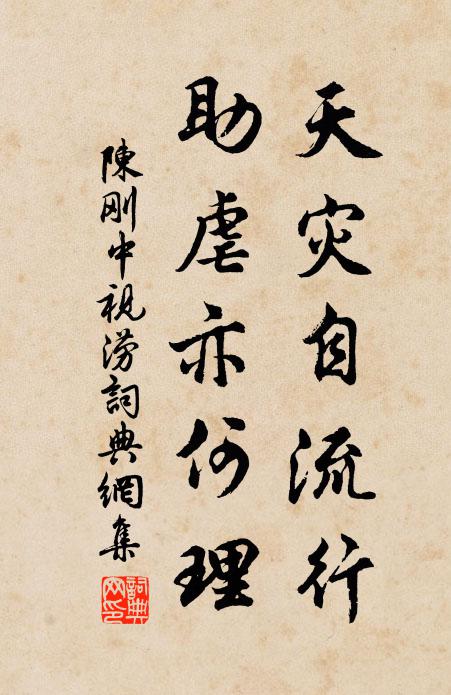 天灾自流行
助虐亦何理
陳剛中視澇詞典網集
詞典网印